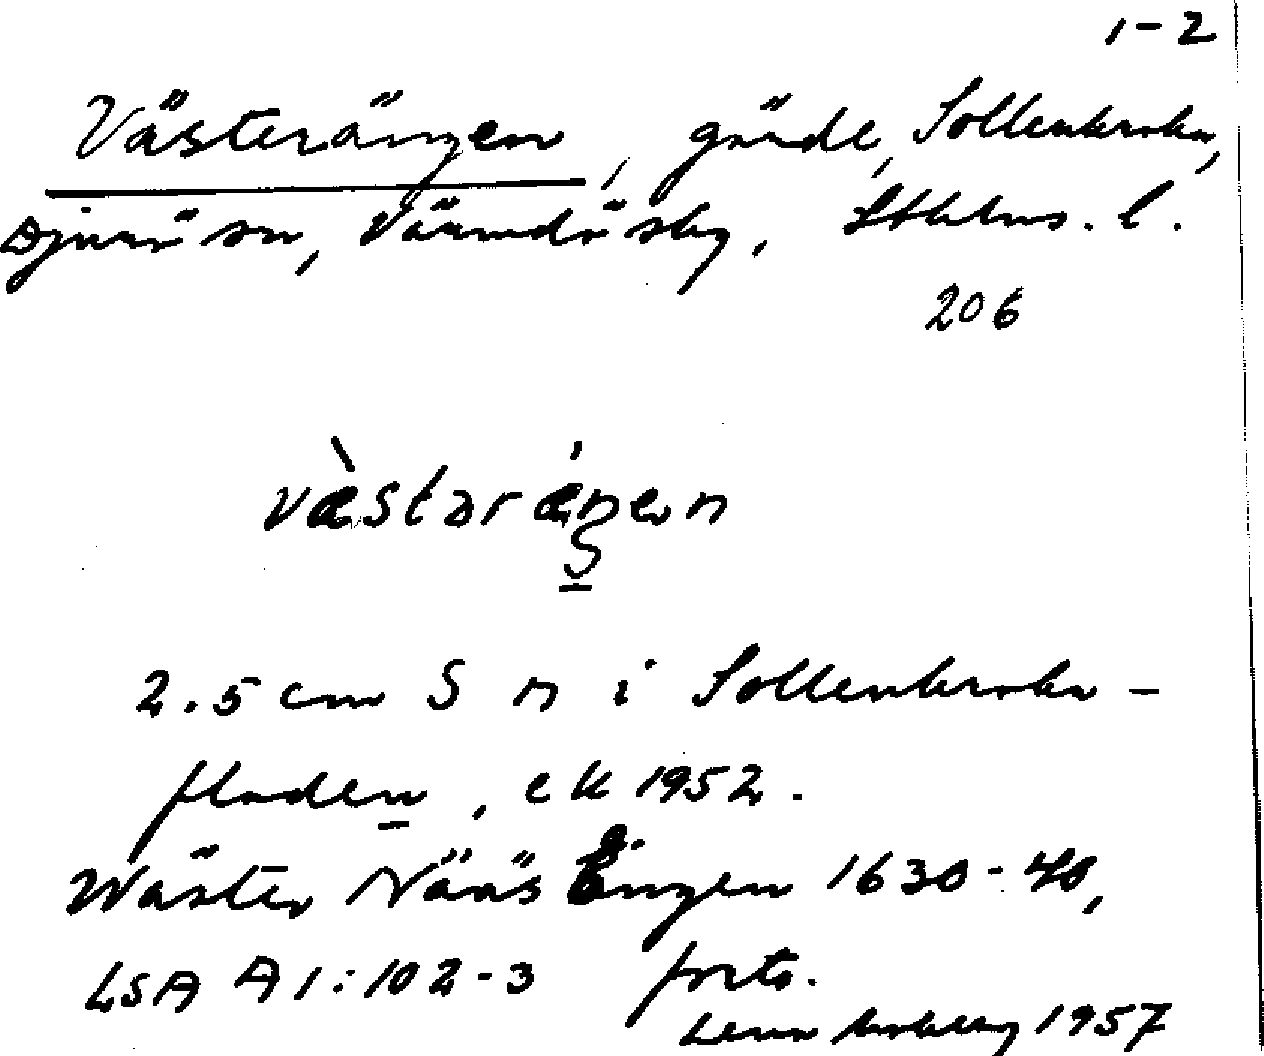 1-2
Västerängen, gärde, Sollenkroka,
Djurö sn, Värmdö sbg, Sthlms. l.
206
vὲstərǽŋen
2.5 cm S n i Sollenkroka-
fladen, ek 1952.
Wäster Nääs Engen 1630-40,
LSA A1:102-3 forts.
1957